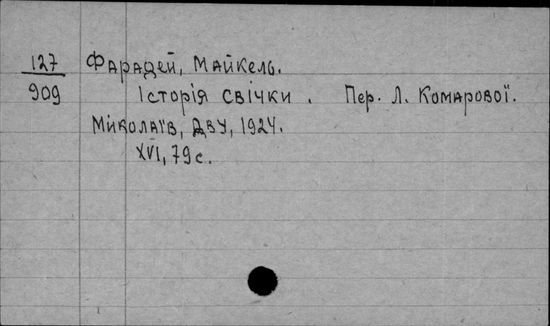 127
909
Фарадей, Майкель.
Історія свічки. Пер. Л. Комарової.
Миколаїв, ДВУ, 1924.
XVI, 79 с.